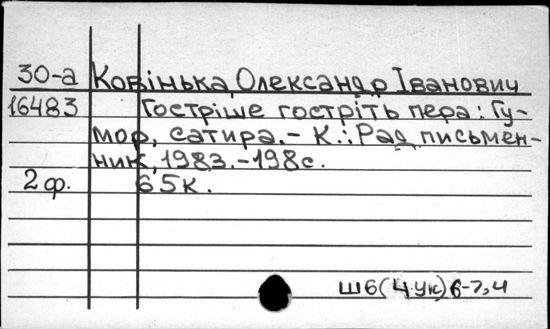 30-а Ковінька, Олександр Іванович
16483 Гостріше гостріть пера: Гу-
мор, сатира.- К.: Рад. письмен-
ник, 1983.-198с.
2 ф. 65к.
Ш6(4Ук)6-7,4